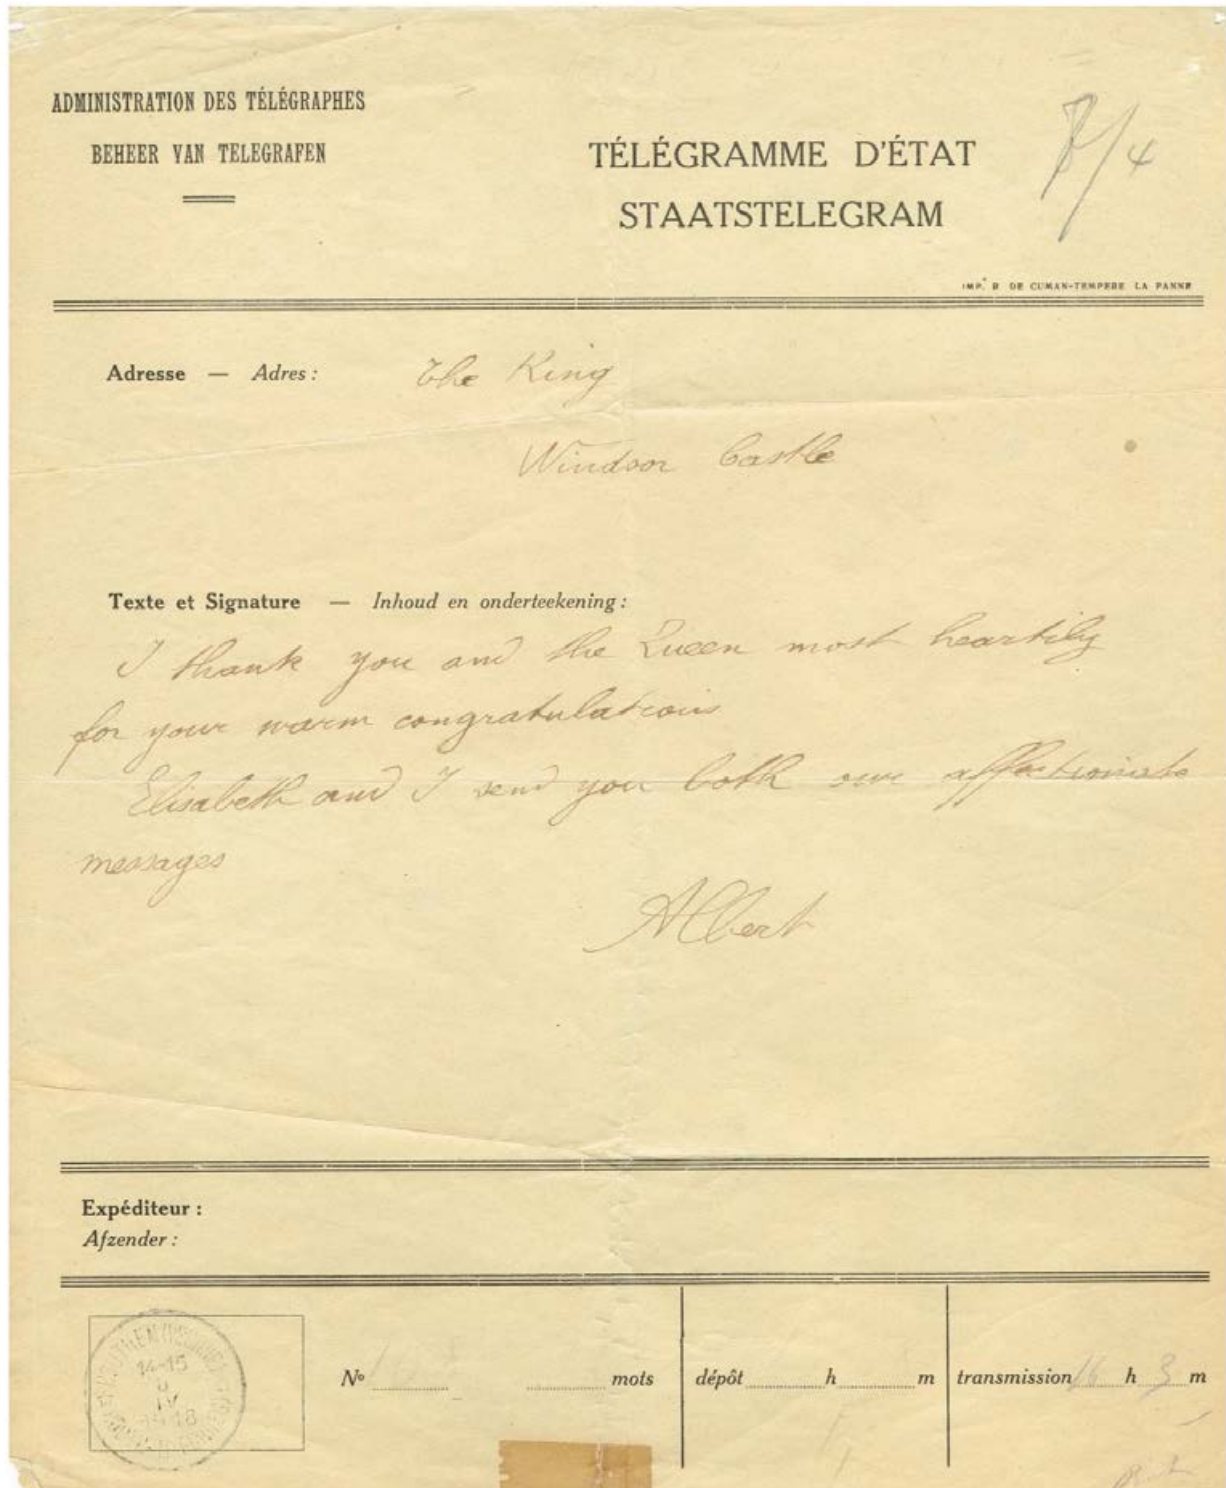 ADMINISTRATION DES TÉLÉGRAPHES
BEHEER VAN TELEGRAFEN
TÉLÉGRAMME D'ÉTAT
STAATSTELEGRAM
8/4
IMP. R DE CUMAN-TEMPERE LA PANNE
Adresse — Adres :
The King
Windsor Castle
Texte et Signature — Inhoud en onderteekening :
I thank you and the Queen most heartily
for your warm congratulations
Elisabeth and I send you both our affectionate
messages
Albert
Expéditeur :
Afzender :
14-15
8
IV
1918
Nº mots dépôt h m transmission 16 h 3 m